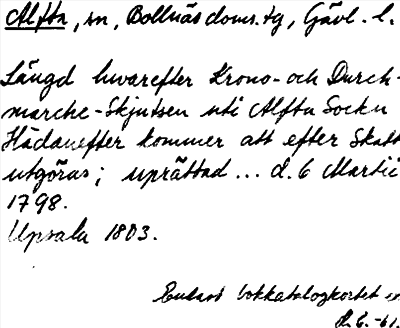 Alfta, sn, Bollnäs doms.tg, Gävl. l.
Längd hvarefter Krono- och Durch-
marche-Skjutsen uti Alfta Sockn
Hädanefter kommer att efter Skatt
utgöras; uprättad ... d. 6 Martii
1798.
Upsala 1803.
Endast bokkatalogkortet